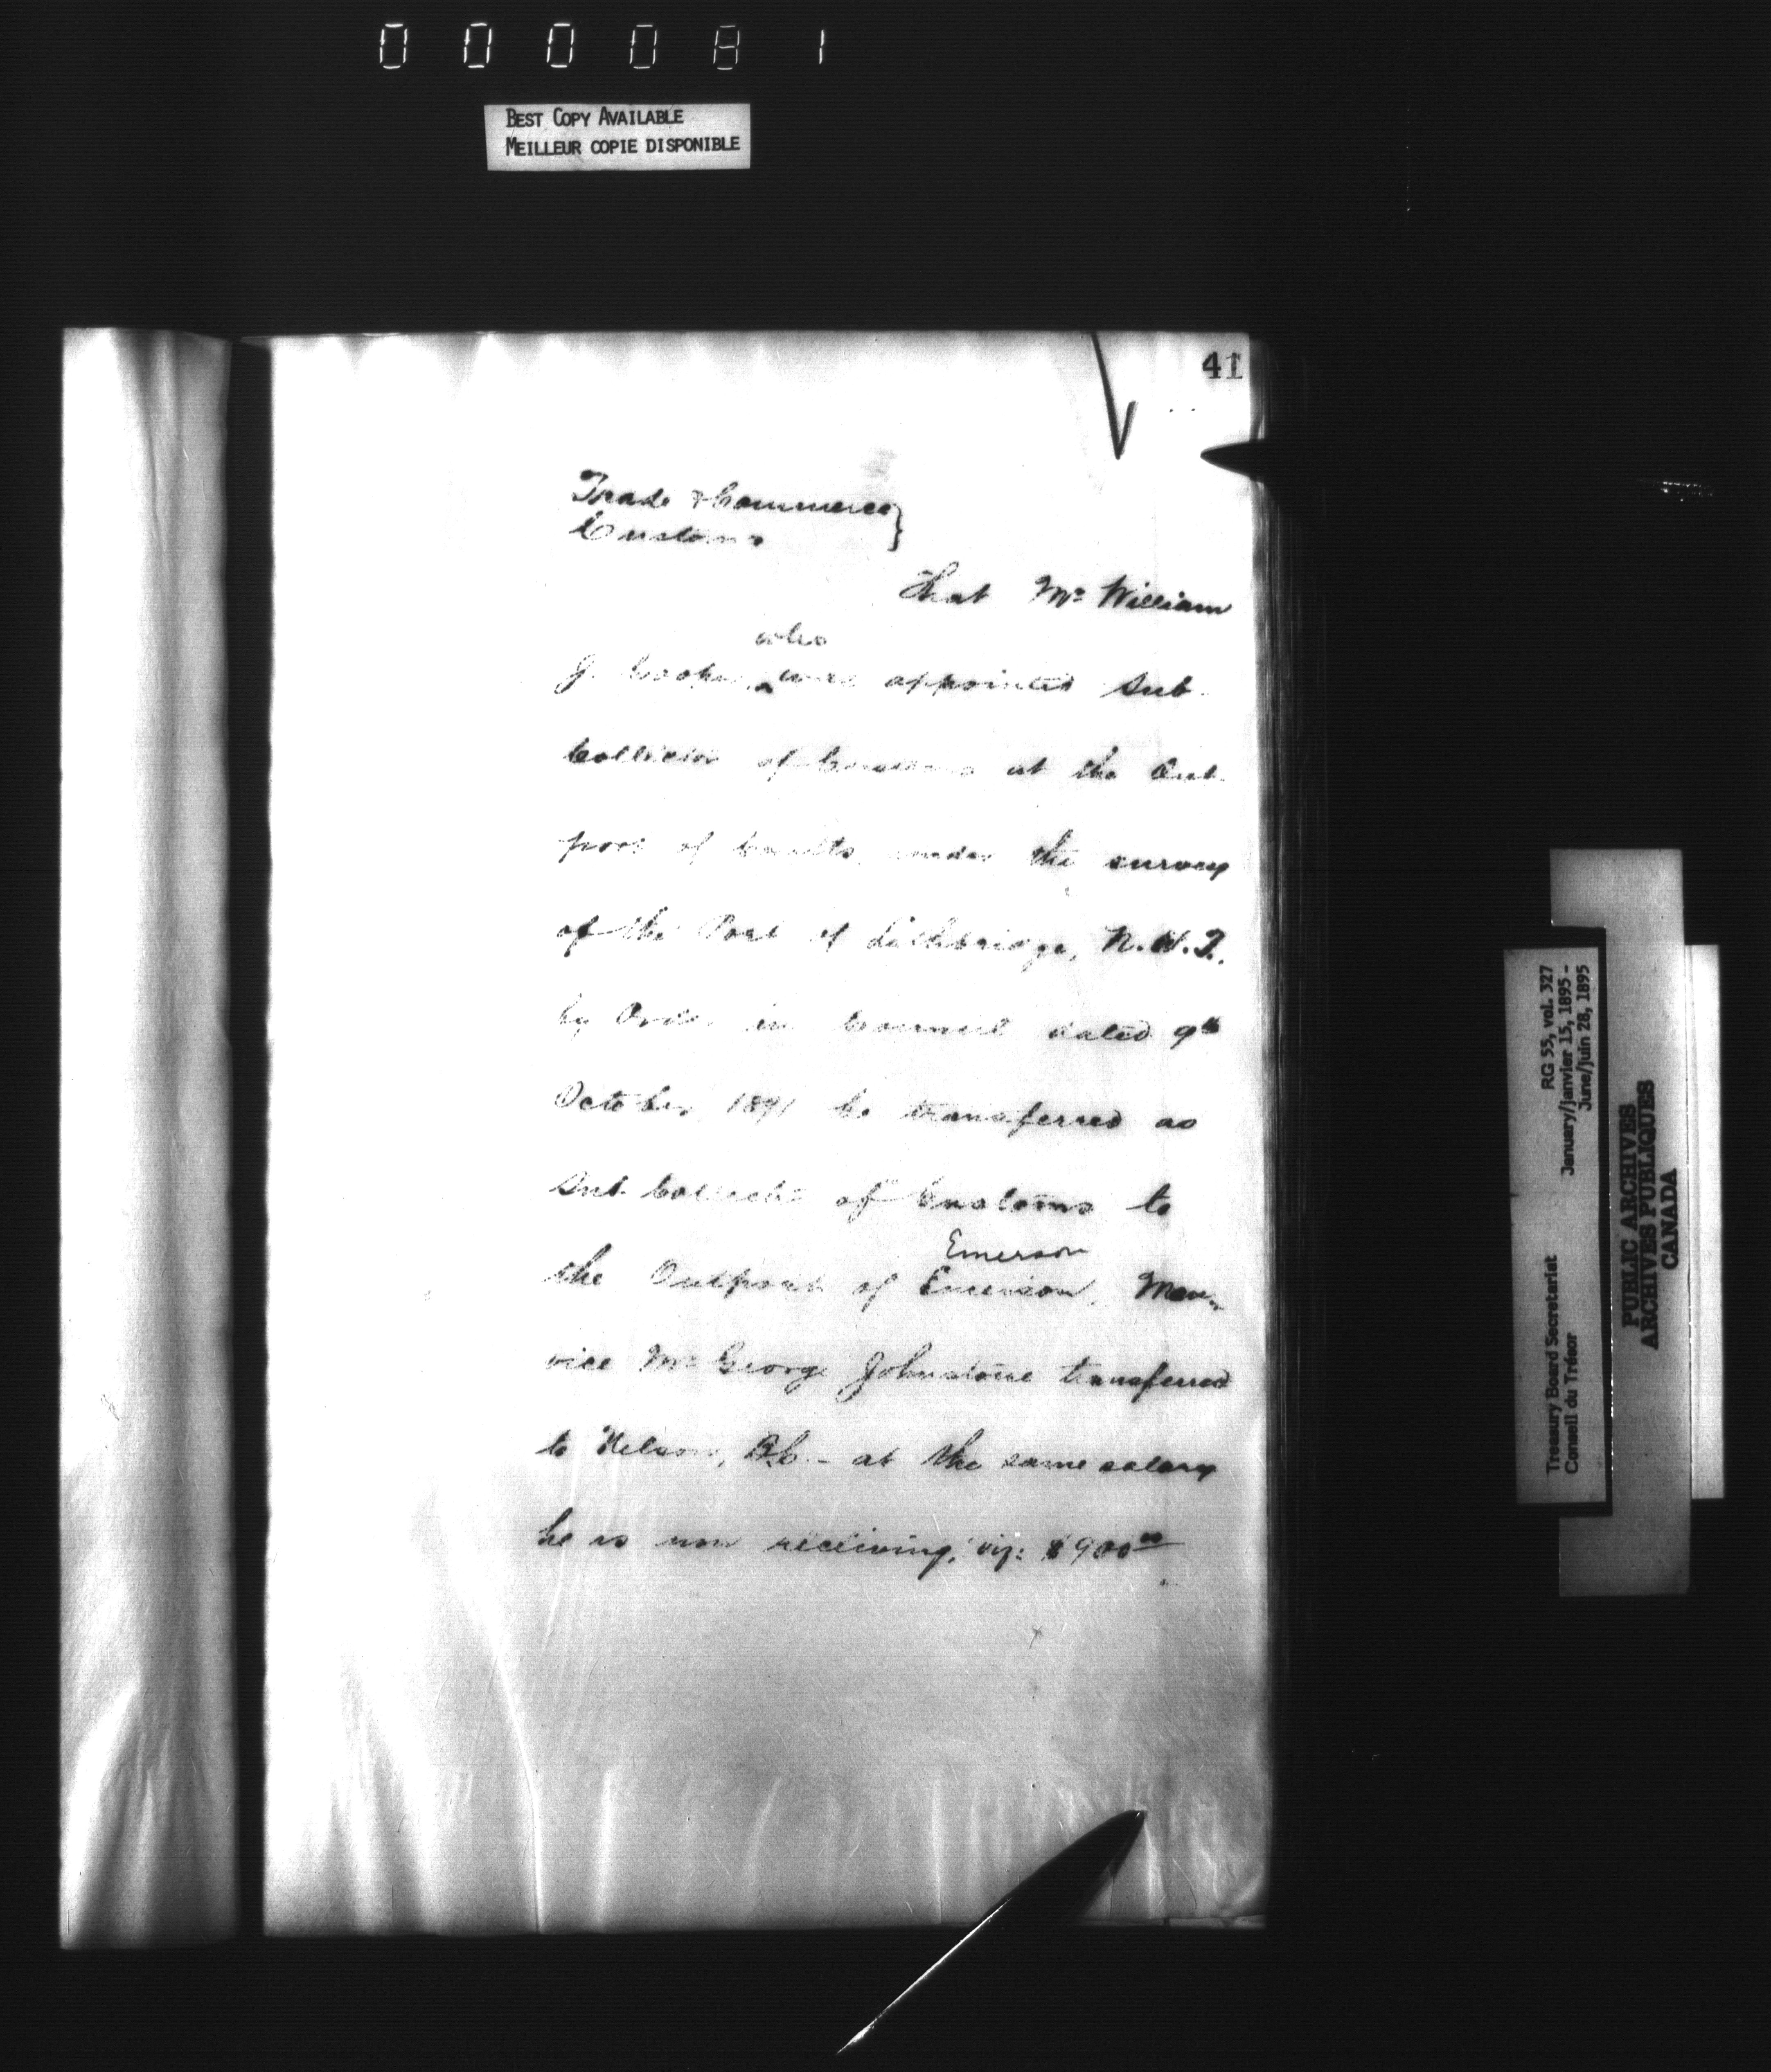 000081
BEST COPY AVAILABLE
MEILLEUR COPIE DISPONIBLE
41
Trade & Commerce }
Customs
That Mr William
who
J. was appointed Sub-
Collector of Customs at the Out-
port of Coutts, under the survey
of the Port of Lethbridge, N.W.T.
by Order in Council dated 9th
October 1891 be transferred as
Sub-Collector of Customs to
Emerson
the Outport of Emerson, Man,
vice Mr George Johnstone transferred
to Nelson, B.C. - at the same salary
he is now receiving, viz: $900.00
RG 55, vol. 327
January/janvier 15, 1895 -
June/juin 28, 1895
Treasury Board Secretariat
Conseil du Trésor
PUBLIC ARCHIVES
ARCHIVES PUBLIQUES
CANADA